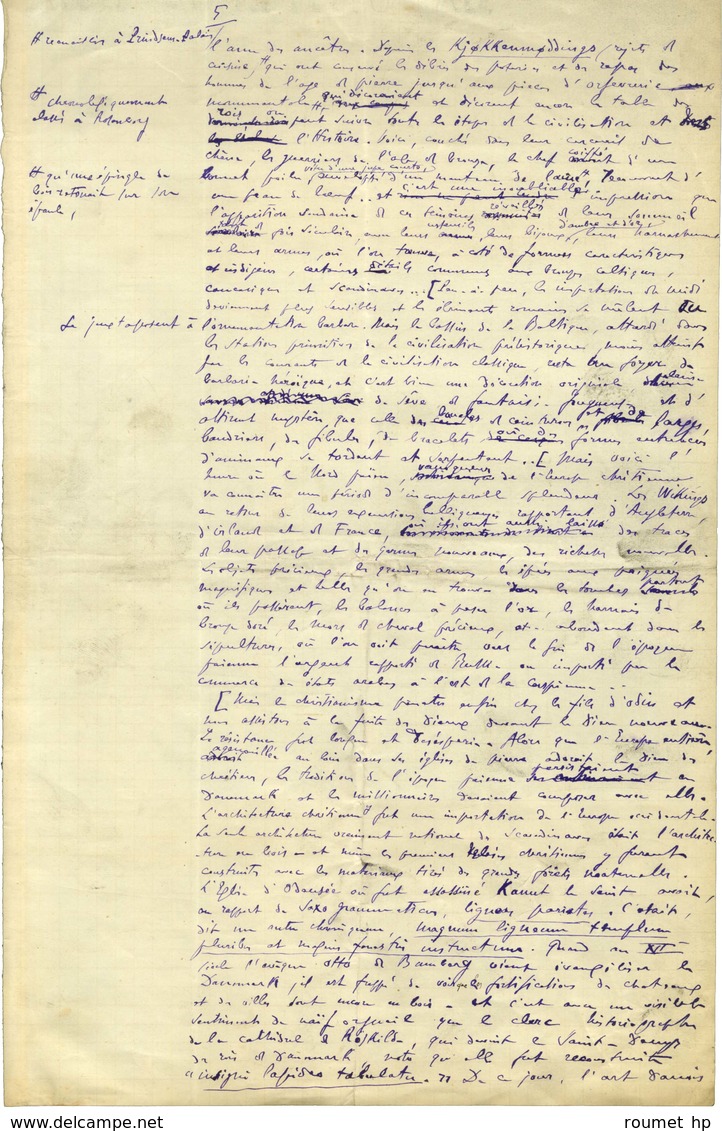 5
# recueillis à Prindsens-Palais
# chronologiquement
classés à Rosenborg
# qu'une épingle de
bois retenait sur son
épaule,
Se juxtaposent à
l'âme des ancêtres. Depuis les Kjøkkenmøddings, rejets de
cuisine # qui ont conservé les débris des poteries et des repas des
hommes de l'âge de pierre jusqu'aux pièces d'orfèvrerie
monumentale # qui décoraient et décorent encore la table des
rois on peut suivre toutes les étapes de la civilisation et
l'Histoire. Voici, couchés dans leur cercueil de
chêne, les guerriers de l'âge de bronze, le chef coiffé d'un
bonnet enveloppé d'un manteau de laine #,
une peau de bœuf.. et c'est une inoubliable impression que
l'apparition soudaine de ces témoins réveillés de leur sommeil
fois séculaire, avec leurs ustensiles, leurs bijoux d'ambre et d'or, leurs harnachements
et leurs armes, où l'on trouve, à côté de formes caractéristiques
et indigènes, certains détails communs aux bronzes celtiques,
caucasiques et scandinaves... [Peu à peu, les importations du midi
deviennent plus sensibles et les éléments romains se mêlent
l'ornementation barbare. Mais le bassin de la Baltique, attardé dans
les stations primitives de la civilisation préhistorique, moins atteint
par les courants de la civilisation classique, reste un foyer de
barbarie héroïque, et c'est bien une décoration originale
de sève et fantaisie fougueuse et d'
attirant mystère, que celle des boucles de ceinturons, et de larges
baudriers, de fibules, de bracelets où des formes
d'animaux se tordent et serpentent... [Mais voici l'
heure où le Nord païen, vainqueur de l'Europe chrétienne
va connaître une période d'incomparable splendeur. Les Wikings
au retour de leurs expéditions rapportent d'Angleterre,
d'Irlande et de France, où ils ont aussi laissé des traces
de leur passage et des germes nouveaux, des richesses nouvelles.
Les objets précieux, les grandes armes les épées aux poignées
magnifiques et telles qu'on en trouva dans les tombes partout
où ils passèrent, les balances à peser l'or, les harnais de
bronze doré, les mors de cheval précieux, etc. abondent dans les
sépultures, où l'on voit paraître vers la fin de l'époque
païenne l'argent rapporté de Russie ou importé par le
commerce des états arabes à l'est de la caspienne...
[Mais le christianisme pénètre enfin chez les fils d'Odin et
nous assistons à la fuite des Dieux devant le Dieu nouveau.
La résistance fut longue et désespérée. Alors que l'Europe entière,
agenouillée au loin dans ses églises de pierre adorait le Dieu des
chrétiens, les traditions de l'époque païenne persistaient en
Danemark et les missionnaires devaient composer avec elles.
L'architecture chrétienne # fut une importation de l'Europe occidentale.
La seule architecture vraiment nationale des Scandinaves était l'architec-
ture en bois - et même les premières églises chrétiennes y furent
construites avec les matériaux tirés des grandes forêts maternelles.
L'Eglise d'Odensée où fut assassiné Kanut le Saint avait,
au rapport de Saxo grammaticus, ligneos parietes. C'était,
dit un autre chroniqueur, magnum ligneum templum
pluribus et magnis fenestris instructum. Quand au XIIe
siècle l'évêque Otto de Bamberg vient évangéliser le
Danemark, il est frappé de voir que les fortifications des châteaux
et des villes sont encore en bois - et c'est avec un visible
sentiment de naïf orgueil que le clerc historiographe
de la cathédrale de Roskilde, qui devint le Saint-Denys
des rois de Danemark, note qu'elle fut reconstruite
« insigni lapideo tabulatu. » De ce jour, l'art danois
roumet hp